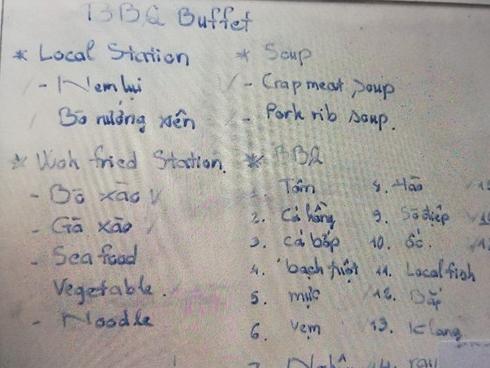 BBQ Buffet
* Local Station
- Nem lụi
Bò nướng xiên
* Soup
- Crap meat soup
- Pork rib soup.
* Woh fried Station.
- Bò xào
- Gà xào
- Sea food
Vegetable.
- Noodle
* BBQ
1. Tôm
2. Cá hồng
3. cá bớp
4. bạch tuột
5. mực
6. Vẹm
8. Hào
9. Sò điệp
10. ốc.
11. Local fish
12. Bắp
13. K lang